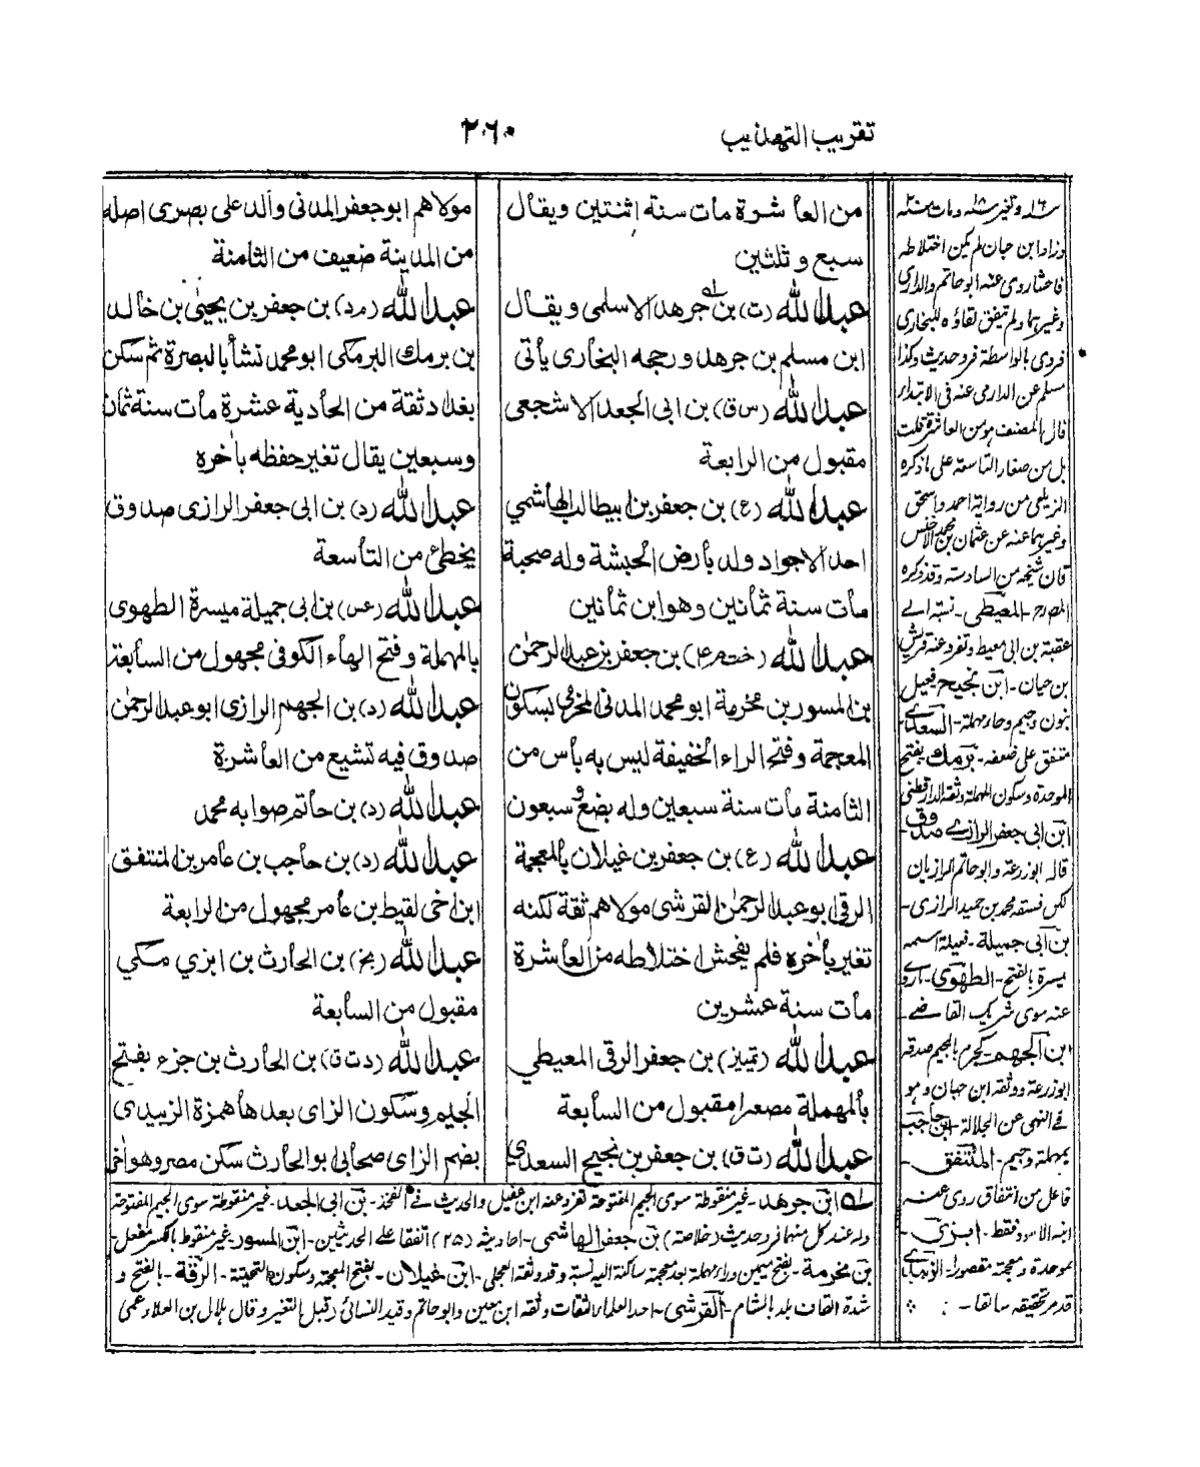 تقريب التهذيب
٢٦٠
من العاشرة مات سنة اثنتين ويقال
سبع وثلثين
عبد الله (ت) بن جرهد الاسلمى ويقال
ابن مسلم بن جرهد ورجحه البخارى يأتى
عبد الله (س ق) بن ابى الجعد الاشجعى
مقبول من الرابعة
عبد الله (ع) بن جعفر بن ابيطالب الهاشمي
احد الاجواد ولد بأرض الحبشة وله صحبة
مات سنة ثمانين وهو ابن ثمانين
عبد الله (خت م ٤) بن جعفر بن عبد الرحمٰن
بن المسور بن مخرمة ابو محمد المدنى المخرمي بسكون
المعجمة وفتح الراء الخفيفة ليس به بأس من
الثامنة مات سنة سبعين وله بضع وسبعون
عبد الله (ع) بن جعفر بن غيلان بالمعجمة
الرقى ابو عبد الرحمٰن القرشى مولاهم ثقة لكنه
تغير بأخره فلم يفحش اختلاطه من العاشرة
مات سنة عشرين
عبد الله (تمييز) بن جعفر الرقى المعيطي
بالمهملة مصغرا مقبول من السابعة
عبد الله (ت ق) بن جعفر بن نجيح السعدي
مولاهم ابو جعفر المدنى والد على بصرى اصله
من المدينة ضعيف من الثامنة
عبد الله (م د) بن جعفر بن يحيىٰ بن خالد
بن برمك البرمكى ابو محمد نشأ بالبصرة ثم سكن
بغداد ثقة من الحادية عشرة مات سنة ثمان
وسبعين يقال تغير حفظه بأخره
عبد الله (د) بن ابى جعفر الرازى صدوق
يخطئ من التاسعة
عبد الله (عس) بن ابى جميلة ميسرة الطهوى
بالمهملة وفتح الهاء الكوفى مجهول من السابعة
عبد الله (د) بن الجهم الرازى ابو عبد الرحمٰن
صدوق فيه تشيع من العاشرة
عبد الله (د) بن حاتم صوابه محمد
عبد الله (د) بن حاجب بن عامر بن المنتفق
ابن اخى لقيط بن عامر مجهول من الرابعة
عبد الله (بخ) بن الحارث بن ابزي مكي
مقبول من السابعة
عبد الله (د ت ق) بن الحارث بن جزء بفتح
الجيم وسكون الزاى بعدها همزة الزبيدى
بضم الزاى صحابى ابو الحارث سكن مصر وهو اخر
وزاد ابن حبان لم يكن اختلاطه
فاحشا روى عنه ابو حاتم والدارى
وغيرهما ولم يتفق لقاؤه للبخارى
فروى بالواسطة فرد حديث وكذا
مسلم عن الدارمى عنه فى الابتداء
قال المصنف هو من العاشرة قلت
بل من صغار التاسعة على ما ذكره
الزيلعى من رواية احمد واسحق
وغيرهما عنه عن عثمان بن محمد الاخنس
فان شيخه من السادسة وقد ذكره
المعيطى - نسبة الے
عقبة بن ابى معيط وتفرد عنه قريش
بن حيان - ابن نجيح فعيل
بنون وجيم وحاء مهملة - السعدے
متفق على ضعفه - برمك بفتح
الموحدة وسكون المهملة وثقه الدارقطنى
ابن ابى جعفر الرازے صدوق
قاله ابوزرعة وابو حاتم الرازيان
لكن فسقه محمد بن حميد الرازى -
بن ابى جميلة - فعيلة اسمه
ميسرة بالفتح - الطهوى - ما روى
عنه سوى شريك القاضے -
ابن الجهم - كجرم بالجيم صدقه
ابوزرعة ووثقه ابن حبان وهو
فے النهى عن الجلالة - ابن حاجب
بمهملة وجيم - المنتفق -
فاعل من انتفاق روى عنه
ابنه الاسود فقط - ابزى -
بموحدة ومعجمة مقصورا - الزبيدے
قد مر تحقيقه سابقا -
له ابن جرهد - غير منقوطة سوى الجيم المفتوحة تفرد عنه ابن عقيل والحديث فے الفخذ - بن ابى الجعد - غير منقوطة سوى الجيم المفتوحة
وله عند كل منهما فرد حديث (خلاصة) بن جعفر الهاشمى - احاديثه (٢٥) اتفقا على الحديثين - ابن المسور - غير منقوط بالكسر مفعل -
بن مخرمة - بفتح ميمين وراء مهملة بعد معجمة ساكنة اليه نسبة وقد وثقه العجلى - ابن غيلان - بفتح المعجمة وسكون التحتية - الرقة - بالفتح و
شدة القاف بلد بالشام - القرشى - احد العلماء الثقات وثقه ابن معين وابو حاتم وقيد النسائى وقبل التغير وقال هلال بن العلاء وعمى